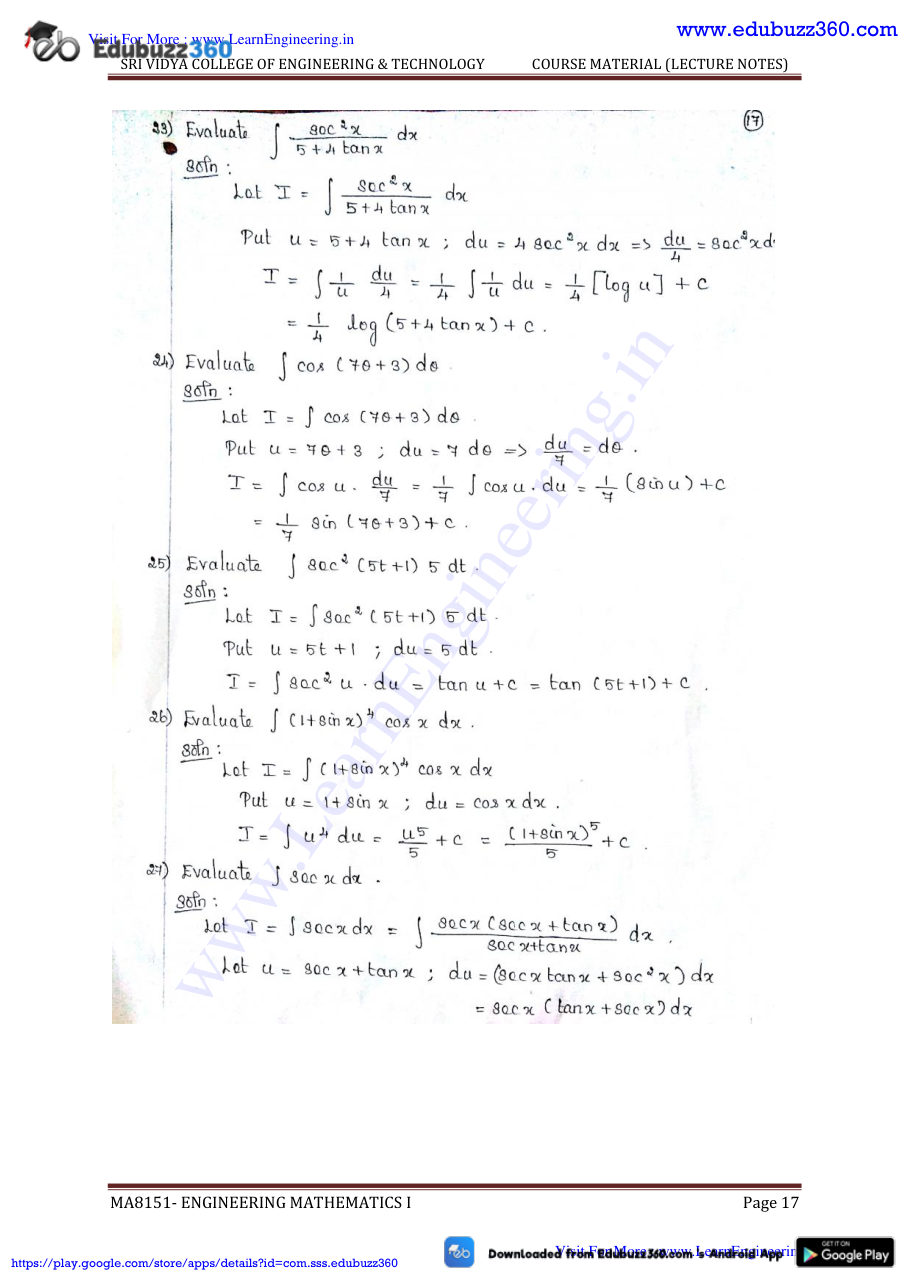 www.edubuzz360.com
Visit For More : www.LearnEngineering.in
Edubuzz360
SRI VIDYA COLLEGE OF ENGINEERING & TECHNOLOGY COURSE MATERIAL (LECTURE NOTES)
17
23) Evaluate ∫ sec²x / (5+4 tan x) dx
Soln :
Let I = ∫ sec²x / (5+4 tan x) dx
Put u = 5+4 tan x ; du = 4 sec²x dx => du/4 = sec²x d
I = ∫ 1/u du/4 = 1/4 ∫ 1/u du = 1/4 [log u] + c
= 1/4 log (5+4 tan x) + c .
24) Evaluate ∫ cos (7θ+3) dθ .
Soln :
Let I = ∫ cos (7θ+3) dθ .
Put u = 7θ + 3 ; du = 7 dθ => du/7 = dθ .
I = ∫ cos u . du/7 = 1/7 ∫ cos u . du = 1/7 (sin u) + c
= 1/7 sin (7θ+3) + c .
25) Evaluate ∫ sec² (5t+1) 5 dt .
Soln :
Let I = ∫ sec² (5t+1) 5 dt .
Put u = 5t + 1 ; du = 5 dt .
I = ∫ sec² u . du = tan u + c = tan (5t+1) + c .
26) Evaluate ∫ (1+sin x)⁴ cos x dx .
Soln :
Let I = ∫ (1+sin x)⁴ cos x dx
Put u = 1+ sin x ; du = cos x dx .
I = ∫ u⁴ du = u⁵/5 + c = (1+sin x)⁵/5 + c .
27) Evaluate ∫ sec x dx .
Soln :
Let I = ∫ sec x dx = ∫ sec x (sec x + tan x) / (sec x + tan x) dx .
Let u = sec x + tan x ; du = (sec x tan x + sec² x) dx
= sec x (tan x + sec x) dx
www.LearnEngineering.in
MA8151- ENGINEERING MATHEMATICS I Page 17
Downloaded from Edubuzz360.com 's Android App
Visit For More : www.LearnEngineerin
GET IT ON
Google Play
https://play.google.com/store/apps/details?id=com.sss.edubuzz360